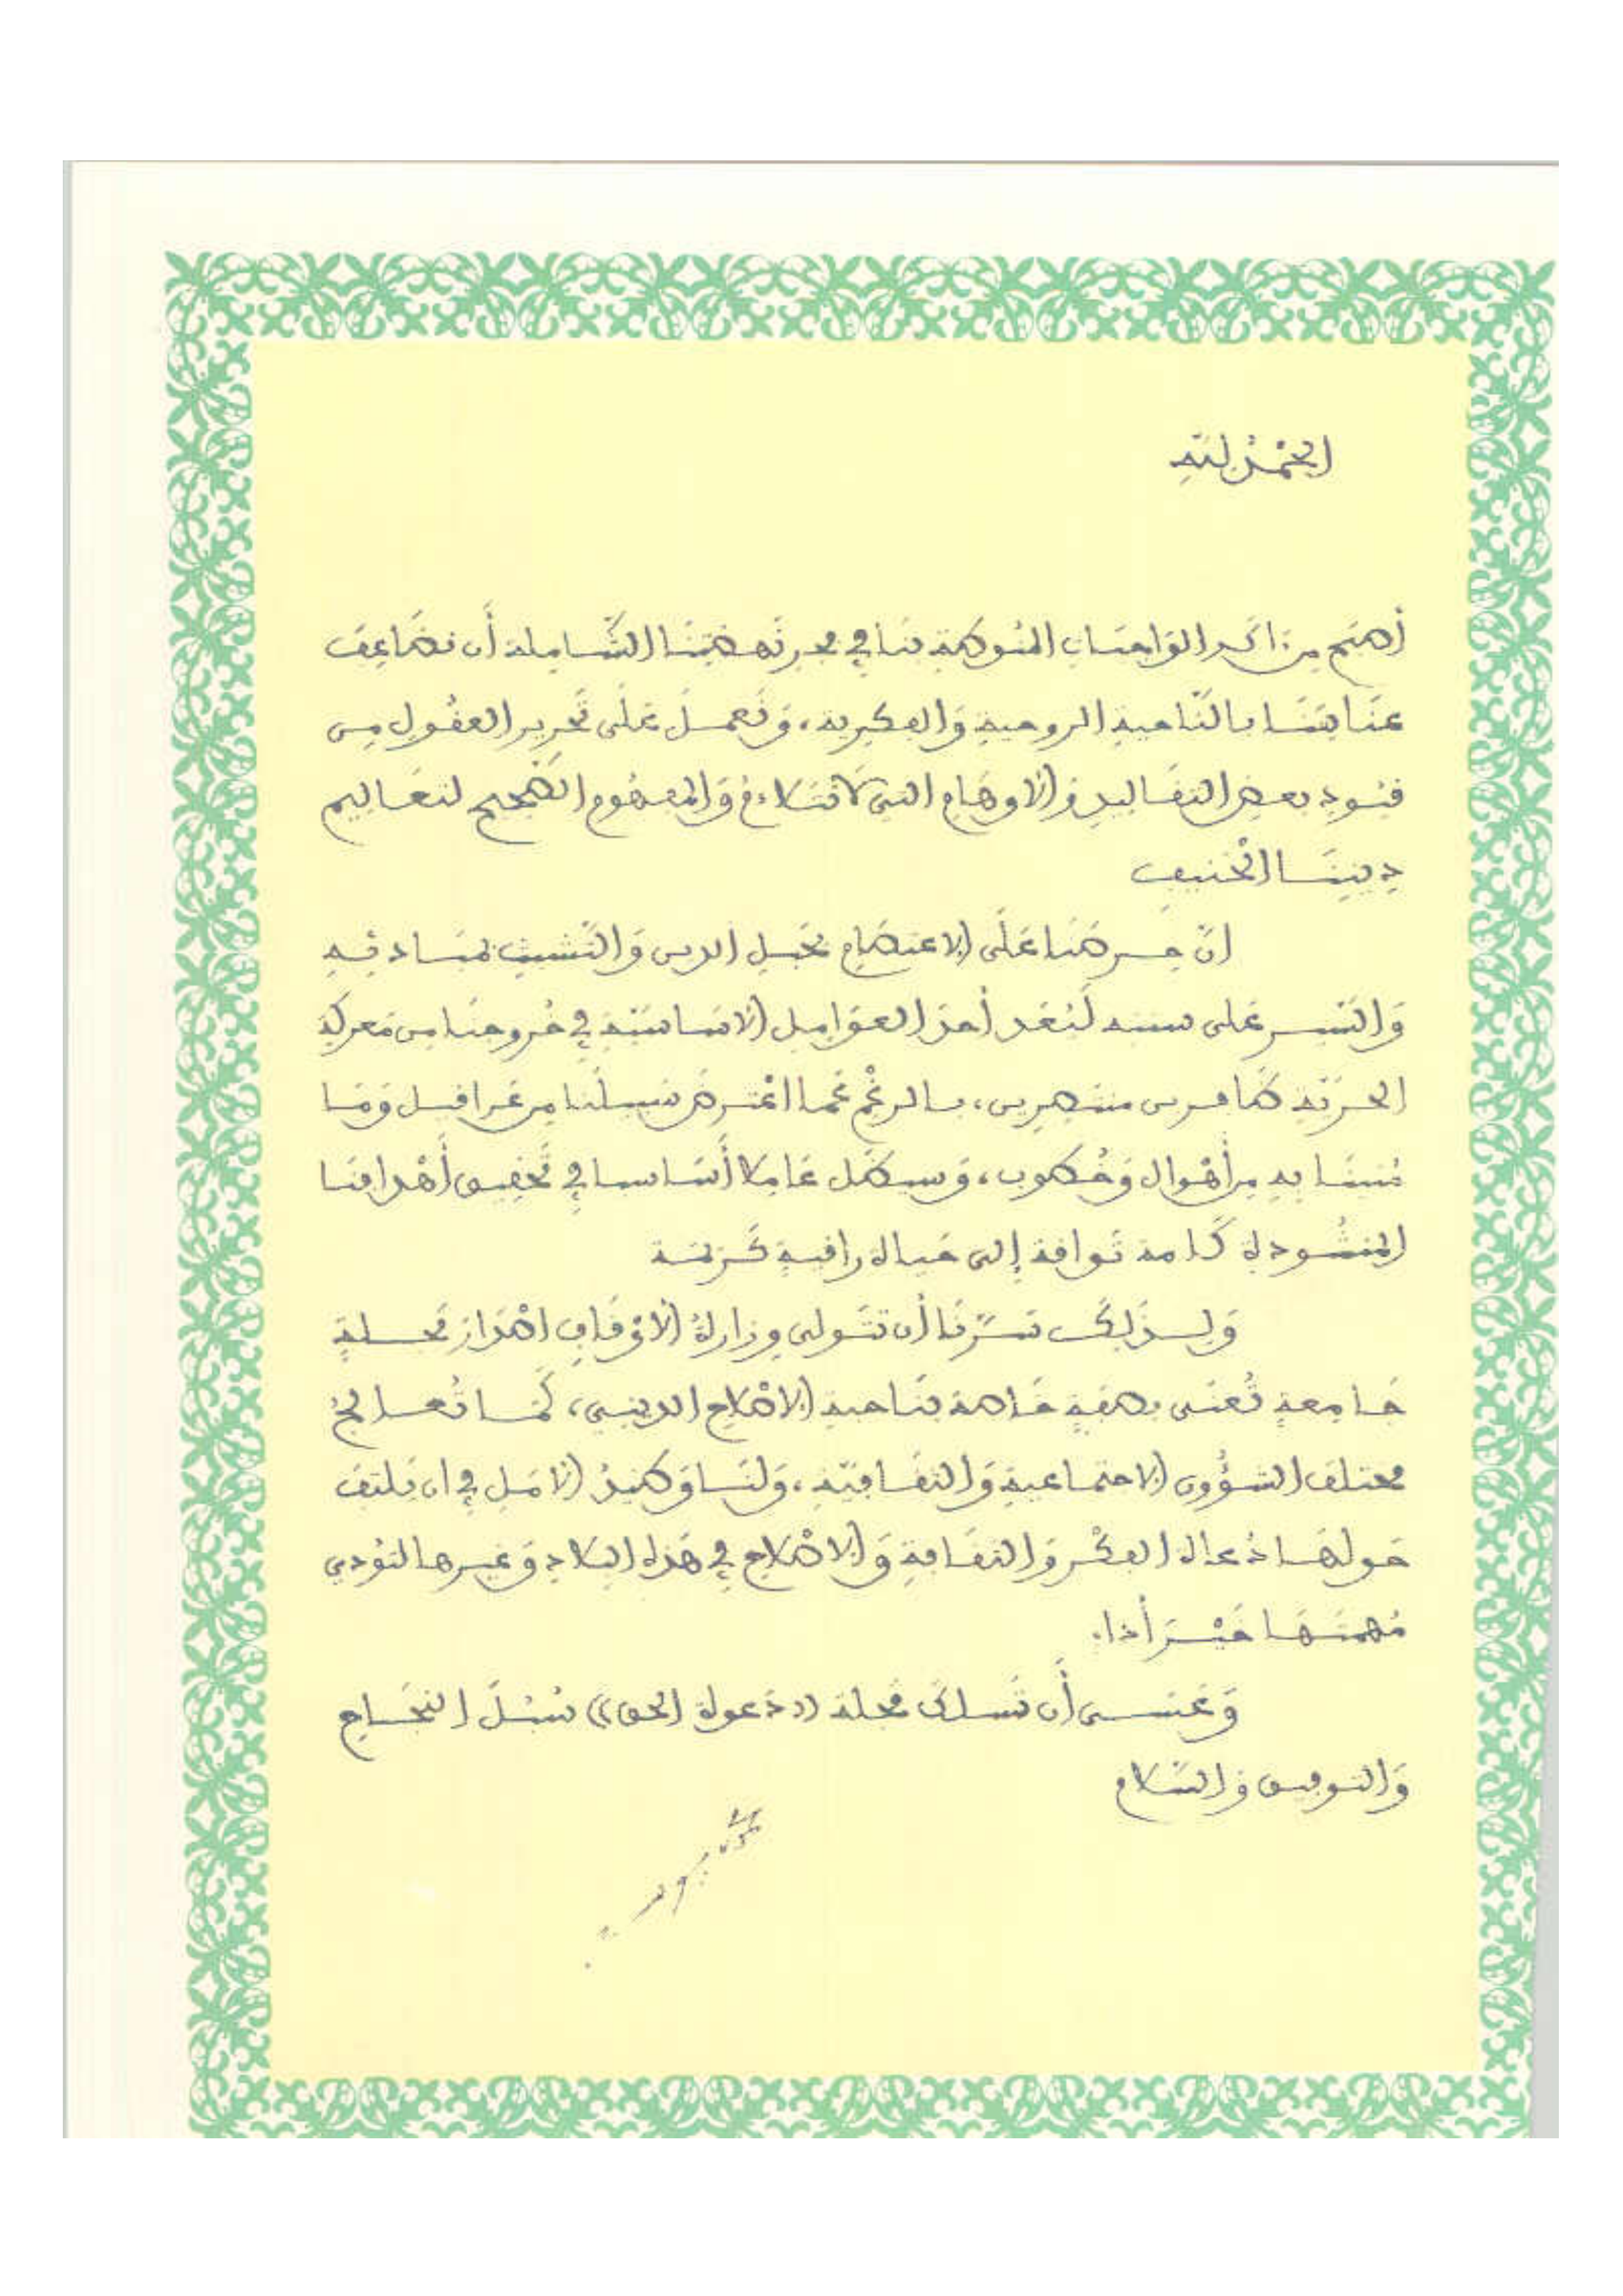 الحَمْدُ لِلَّهِ
أهَم من آكد الواجبات المنوطة بنا في فجر نَهضتِنَا الشَّاملة أن نضَاعِفَ
عنَايتنَا بالنَّاحية الروحية وَالفكرية، وَنَعمَلَ عَلَى تَحرير العقُول من
قيُود بعض التقَاليد وَالاوهَام التي لَا تتَلاءمُ وَالمفهُوم الصَّحيح لتعَاليم
دِيننَا الحَنيف
انّ حِرصَنا عَلَى الاعتصَام بحَبل الدين وَالتَشبث بمبَادئه
وَالسَّير عَلى سننه لَيُعَد أحَدَ العوَامل الاسَاسيَّة في خُروجنَا من مَعركَة
الحرّيّة ظَافرين منتصرين، بالرغْم عَما اعْترضَ سَبيلَنا من عَراقيل وَمَا
مُنينَا به من أهْوال وَخُطوب، وَسيظَل عَاملا أسَاسيا في تَحقيق أهْدافنَا
المنشُودة كَأمة تَواقة إلى حَياة راقية كَريمَة
وَلذَلكَ سَرّنَا أن تتَولى وزارةُ الاوْقَاف اصْدَارَ مَجلة
جَامعةٍ تُعنَى بصفَةٍ خَاصة بنَاحية الاصْلاح الديني، كَمَا تُعالجُ
مختلف الشؤُون الاجتماعية وَالثقَافيّة، وَلنَا وَطيدُ الامَل في ان يَلتفَ
حَولهَا دُعاة الفكْر وَالثقَافة وَالاصْلاح في هَذه البلاد وَغيرها لتُؤدي
مُهمتهَا خَيْرَ أداء.
وَعَسى أن تَسلكَ مَجلة ((دَعوة الحق)) سُبُلَ النجَاح
وَالتوفيق وَالسَّلام